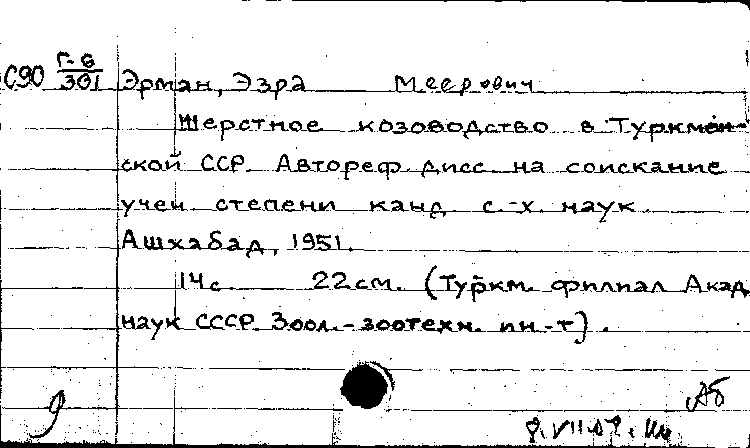 С90 Г-6/301 Эрман, Эзра Меерович
Шерстное козоводство в Туркмен-
ской ССР. Автореф. дисс. на соискание
учен. степени канд. с.-х. наук.
Ашхабад, 1951.
14 с. 22 см. (Туркм. филиал Акад.
наук СССР. Зоол.-зоотехн. ин-т).
9